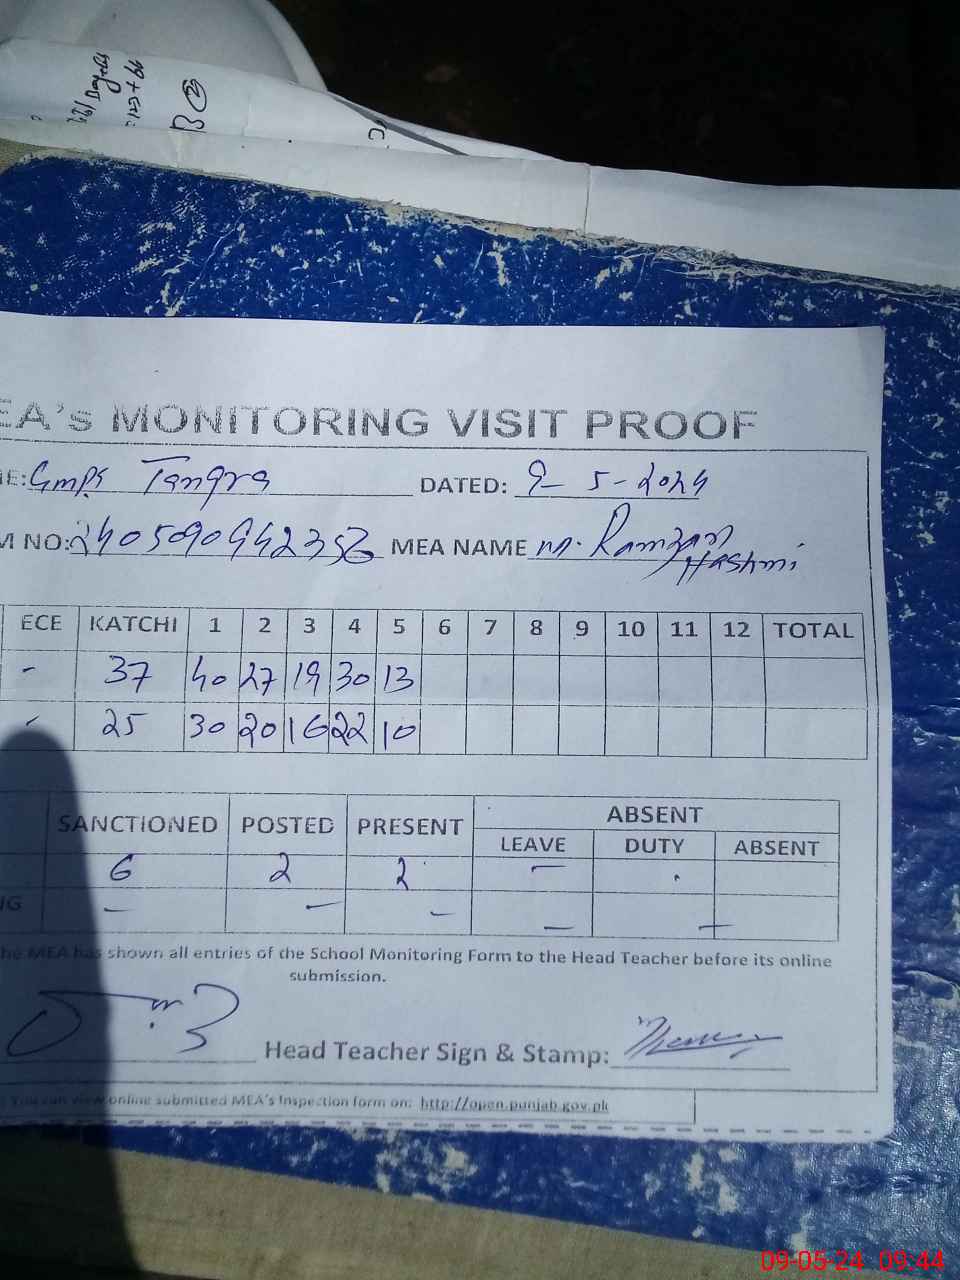 EA's MONITORING VISIT PROOF
E: Gmps Tangra DATED: 9-5-2024
M NO: 240509094235 MEA NAME M. Ramzan Hashmi
ECE KATCHI 1 2 3 4 5 6 7 8 9 10 11 12 TOTAL
- 37 40 27 19 30 13
- 25 30 20 16 22 10
SANCTIONED POSTED PRESENT ABSENT
LEAVE DUTY ABSENT
6 2 2 -
NG - - - - -
he MEA has shown all entries of the School Monitoring Form to the Head Teacher before its online
submission.
Head Teacher Sign & Stamp:
You can view online submitted MEA's Inspection form on: http://open.punjab.gov.pk
09-05-24 09:44